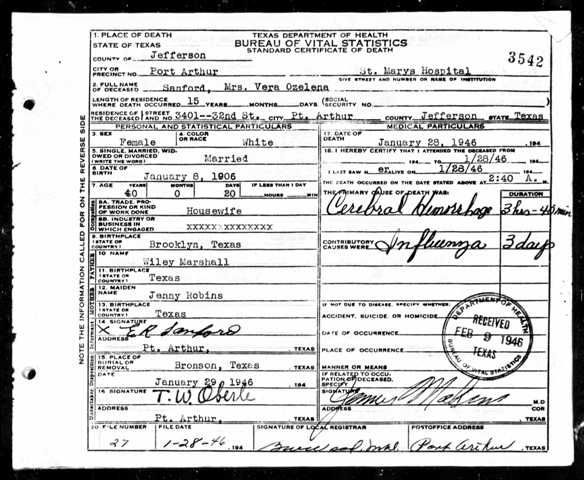 TEXAS DEPARTMENT OF HEALTH
BUREAU OF VITAL STATISTICS
STANDARD CERTIFICATE OF DEATH
3542
1. PLACE OF DEATH
STATE OF TEXAS
COUNTY OF Jefferson
CITY OR PRECINCT NO. Port Arthur St. Marys Hospital
GIVE STREET AND NUMBER OR NAME OF INSTITUTION
2. FULL NAME OF DECEASED Sanford, Mrs. Vera Ozelena
LENGTH OF RESIDENCE WHERE DEATH OCCURRED 15 YEARS MONTHS DAYS (SOCIAL SECURITY NO.
RESIDENCE OF THE DECEASED (STREET AND NO. 3401--32nd St. CITY Pt. Arthur COUNTY Jefferson STATE Texas
PERSONAL AND STATISTICAL PARTICULARS
3. SEX Female
4. COLOR OR RACE White
5. SINGLE, MARRIED, WIDOWED OR DIVORCED (WRITE THE WORD) Married
6. DATE OF BIRTH January 8, 1906
7. AGE YEARS 40 MONTHS 0 DAYS 20 IF LESS THAN 1 DAY HOURS MIN
8A. TRADE, PROFESSION OR KIND OF WORK DONE Housewife
8B. INDUSTRY OR BUSINESS IN WHICH ENGAGED
9. BIRTHPLACE (STATE OR COUNTRY) Brooklyn, Texas
FATHER
10. NAME Wiley Marshall
11. BIRTHPLACE (STATE OR COUNTRY) Texas
MOTHER
12. MAIDEN NAME Jenny Robins
13. BIRTHPLACE (STATE OR COUNTRY) Texas
Informant
14. SIGNATURE X E R Sanford
ADDRESS Pt. Arthur, TEXAS
15. PLACE OF BURIAL OR REMOVAL Bronson, Texas TEXAS
DATE January 29, 1946
16. SIGNATURE T. W. Oberle
ADDRESS Pt. Arthur, TEXAS
MEDICAL PARTICULARS
17. DATE OF DEATH January 28, 1946 194
18. I HEREBY CERTIFY THAT I ATTENDED THE DECEASED FROM 1/28/46 194
I LAST SAW H er ALIVE ON 1/28/46 194
THE DEATH OCCURRED ON THE DATE STATED ABOVE AT 2:40 A. M.
THE PRIMARY CAUSE OF DEATH WAS: DURATION
Cerebral Hemorrhage 3 hrs-45 min
CONTRIBUTORY CAUSES WERE: Influenza 3 days
IF NOT DUE TO DISEASE, SPECIFY WHETHER:
ACCIDENT, SUICIDE, OR HOMICIDE
DATE OF OCCURRENCE
PLACE OF OCCURRENCE
MANNER OR MEANS
IF RELATED TO OCCUPATION OF DECEASED, SPECIFY
SIGNATURE M.D
ADDRESS COR TEXAS
DEPARTMENT OF HEALTH
RECEIVED
FEB 9 1946
TEXAS
BUREAU OF VITAL STATISTICS
20 FILE NUMBER 27
FILE DATE 1-28-46 194
SIGNATURE OF LOCAL REGISTRAR
POSTOFFICE ADDRESS Port Arthur TEXAS
NOTE THE INFORMATION CALLED FOR ON THE REVERSE SIDE